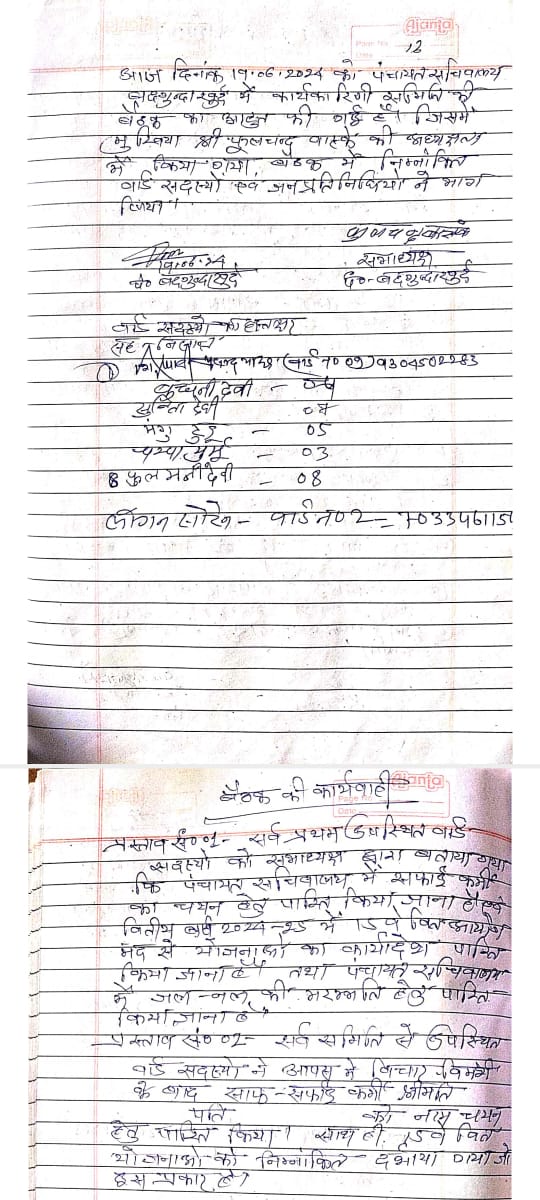 Ajanta
12
आज दिनांक 19.06.2024 को पंचायत सचिवालय
में कार्यकारिणी समिति की
बैठक का आहुत की गई है। जिसमें
मुखिया श्री फूलचन्द की अध्यक्षता
में किया गया, बैठक में निम्नांकित
वार्ड सदस्यों एवं जनप्रतिनिधियो ने भाग
लिया।
19.06.24
सभाध्यक्ष
वार्ड सदस्यो का हस्ताक्षर
(वार्ड न0 09) 9304502283
देवी - 04
सुनिता देवी 07
मंगु टुडू - 05
मुर्मू - 03
8 फुलमनी देवी - 08
सोरेन - वार्ड न0 2 =
Ajanta
बैठक की कार्यवाही
प्रस्ताव सं0 01- सर्व प्रथम उपस्थित वार्ड
सदस्यो को सभाध्यक्ष द्वारा बताया गया
कि पंचायत सचिवालय में सफाई कर्मी
का चयन हेतु पारित किया जाना है एवं
वितीय वर्ष 2024-25 में 15 वें वित आयोग
मद से योजनाओं का कार्यादेश पारित
किया जाना है। तथा पंचायत सचिवालय
में जल-नल की मरम्मति हेतु पारित
किया जाना है
प्रस्ताव सं0 02- सर्व समिति से उपस्थित
वार्ड सदस्यो ने आपस में विचार-विमर्श
के बाद साफ-सफाई कर्मी श्रीमति
पति का नाम चयन
हेतु पारित किया। साथ ही 15वें वित
योजनाओ को निम्नांकित दर्शाया गया जो
इस प्रकार है।